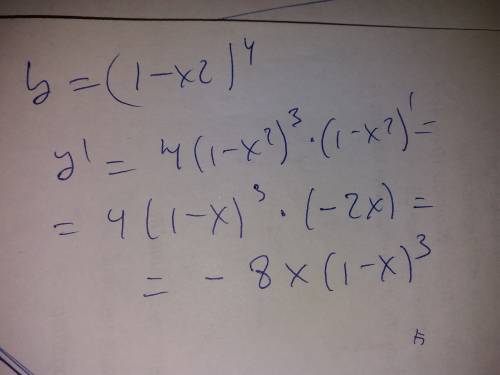 y = (1-x2)^4
y' = 4(1-x²)³·(1-x²)' =
= 4(1-x)³·(-2x) =
= -8x(1-x)³